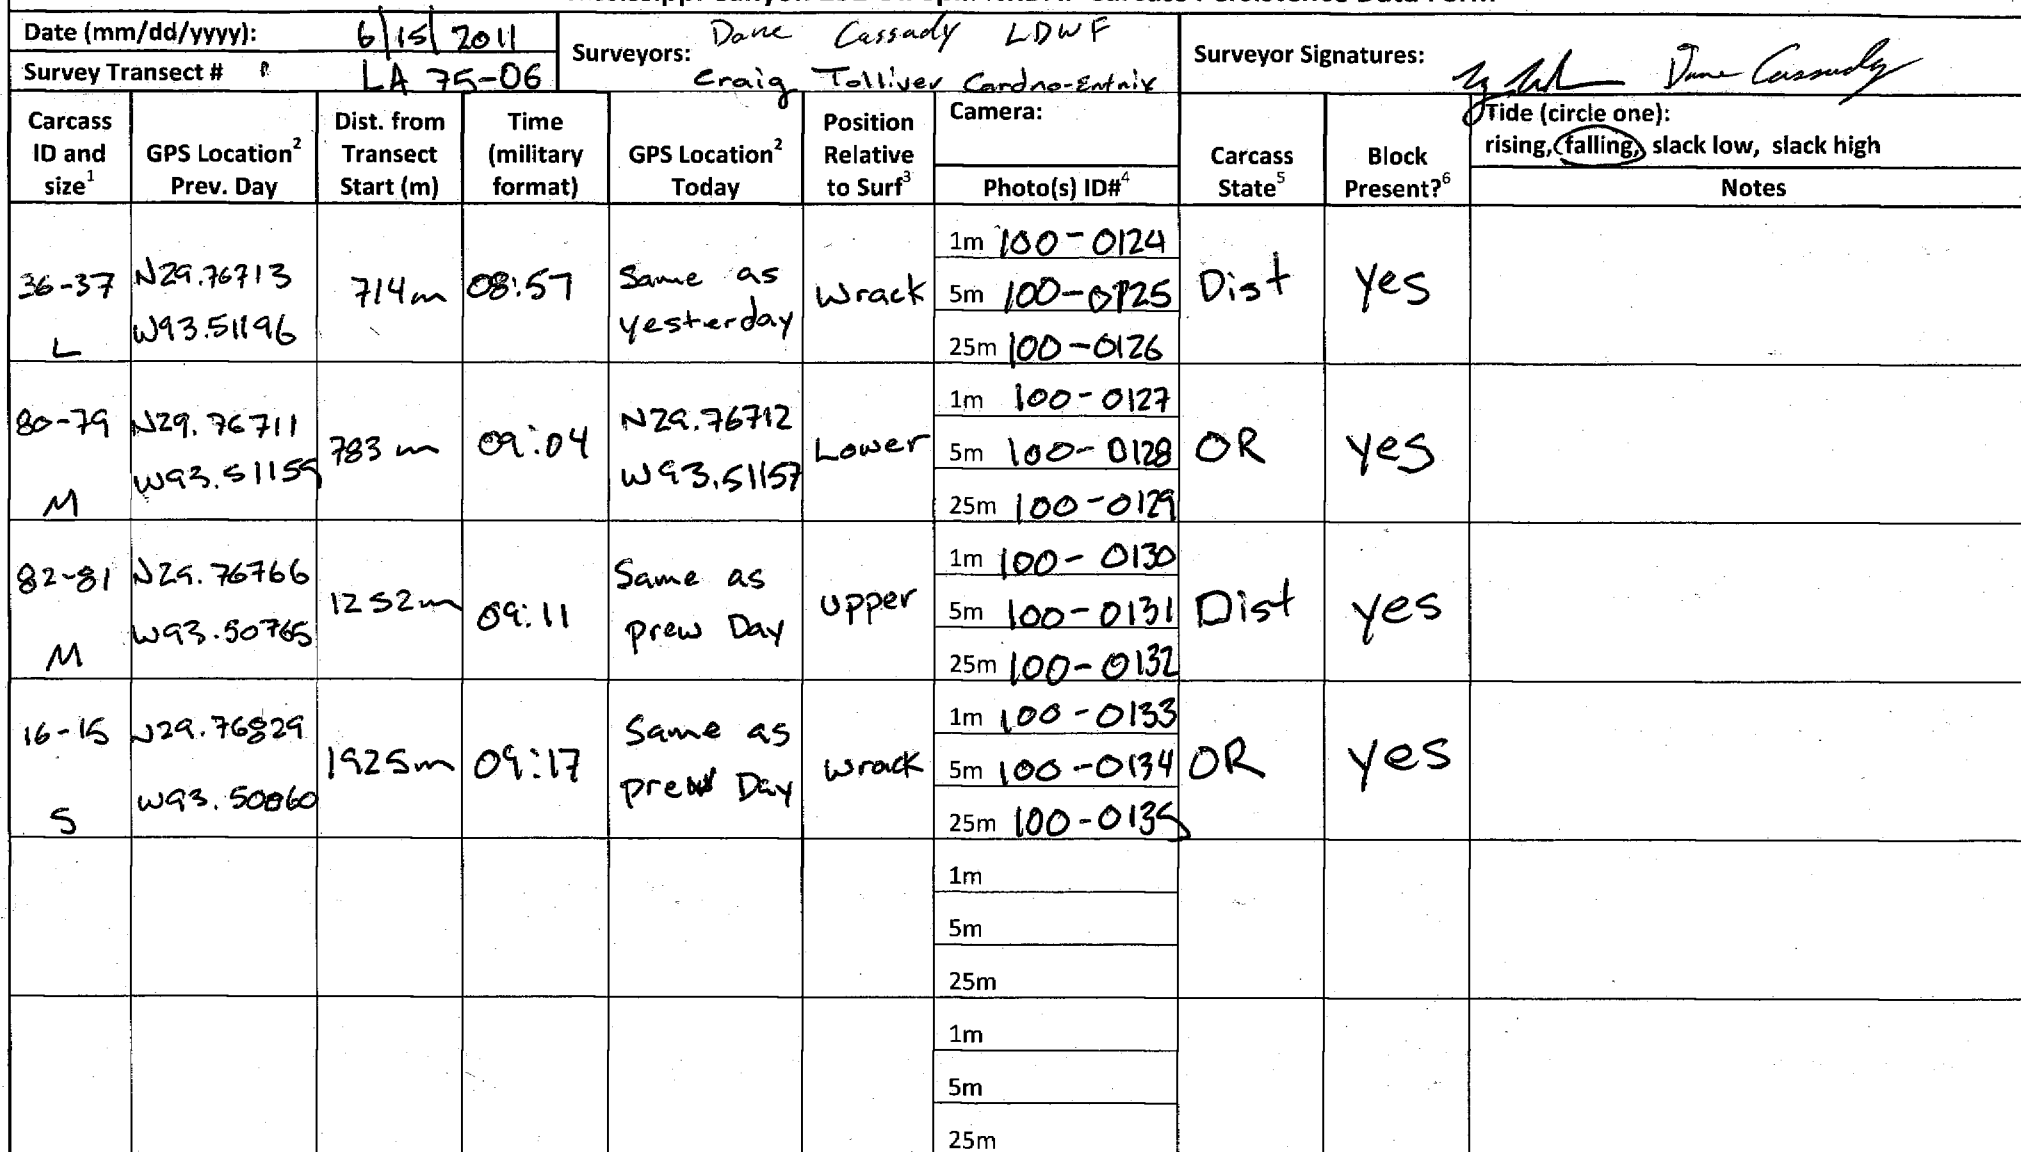 Date (mm/dd/yyyy): 6/15/2011
Survey Transect # LA 75-06
Surveyors: Dane Cassady LDWF
Craig Tolliver Cardno-Entrix
Surveyor Signatures: Dane Cassady
Carcass ID and size1
GPS Location2 Prev. Day
Dist. from Transect Start (m)
Time (military format)
GPS Location2 Today
Position Relative to Surf3
Camera:
Photo(s) ID#4
Carcass State5
Block Present?6
Tide (circle one):
rising, falling, slack low, slack high
Notes
36-37 L
N29.76713
W93.51196
714m
08:57
Same as
yesterday
Wrack
1m 100-0124
5m 100-0125
25m 100-0126
Dist
yes
80-79 M
N29.76711
W93.51159
783 m
09:04
N29.76712
W93.51157
Lower
1m 100-0127
5m 100-0128
25m 100-0129
OR
yes
82-81 M
N29.76766
W93.50765
1252m
09:11
Same as
prew Day
upper
1m 100-0130
5m 100-0131
25m 100-0132
Dist
yes
16-15 S
N29.76829
W93.50060
1925m
09:17
Same as
prew Day
wrack
1m 100-0133
5m 100-0134
25m 100-0135
OR
yes
1m
5m
25m
1m
5m
25m